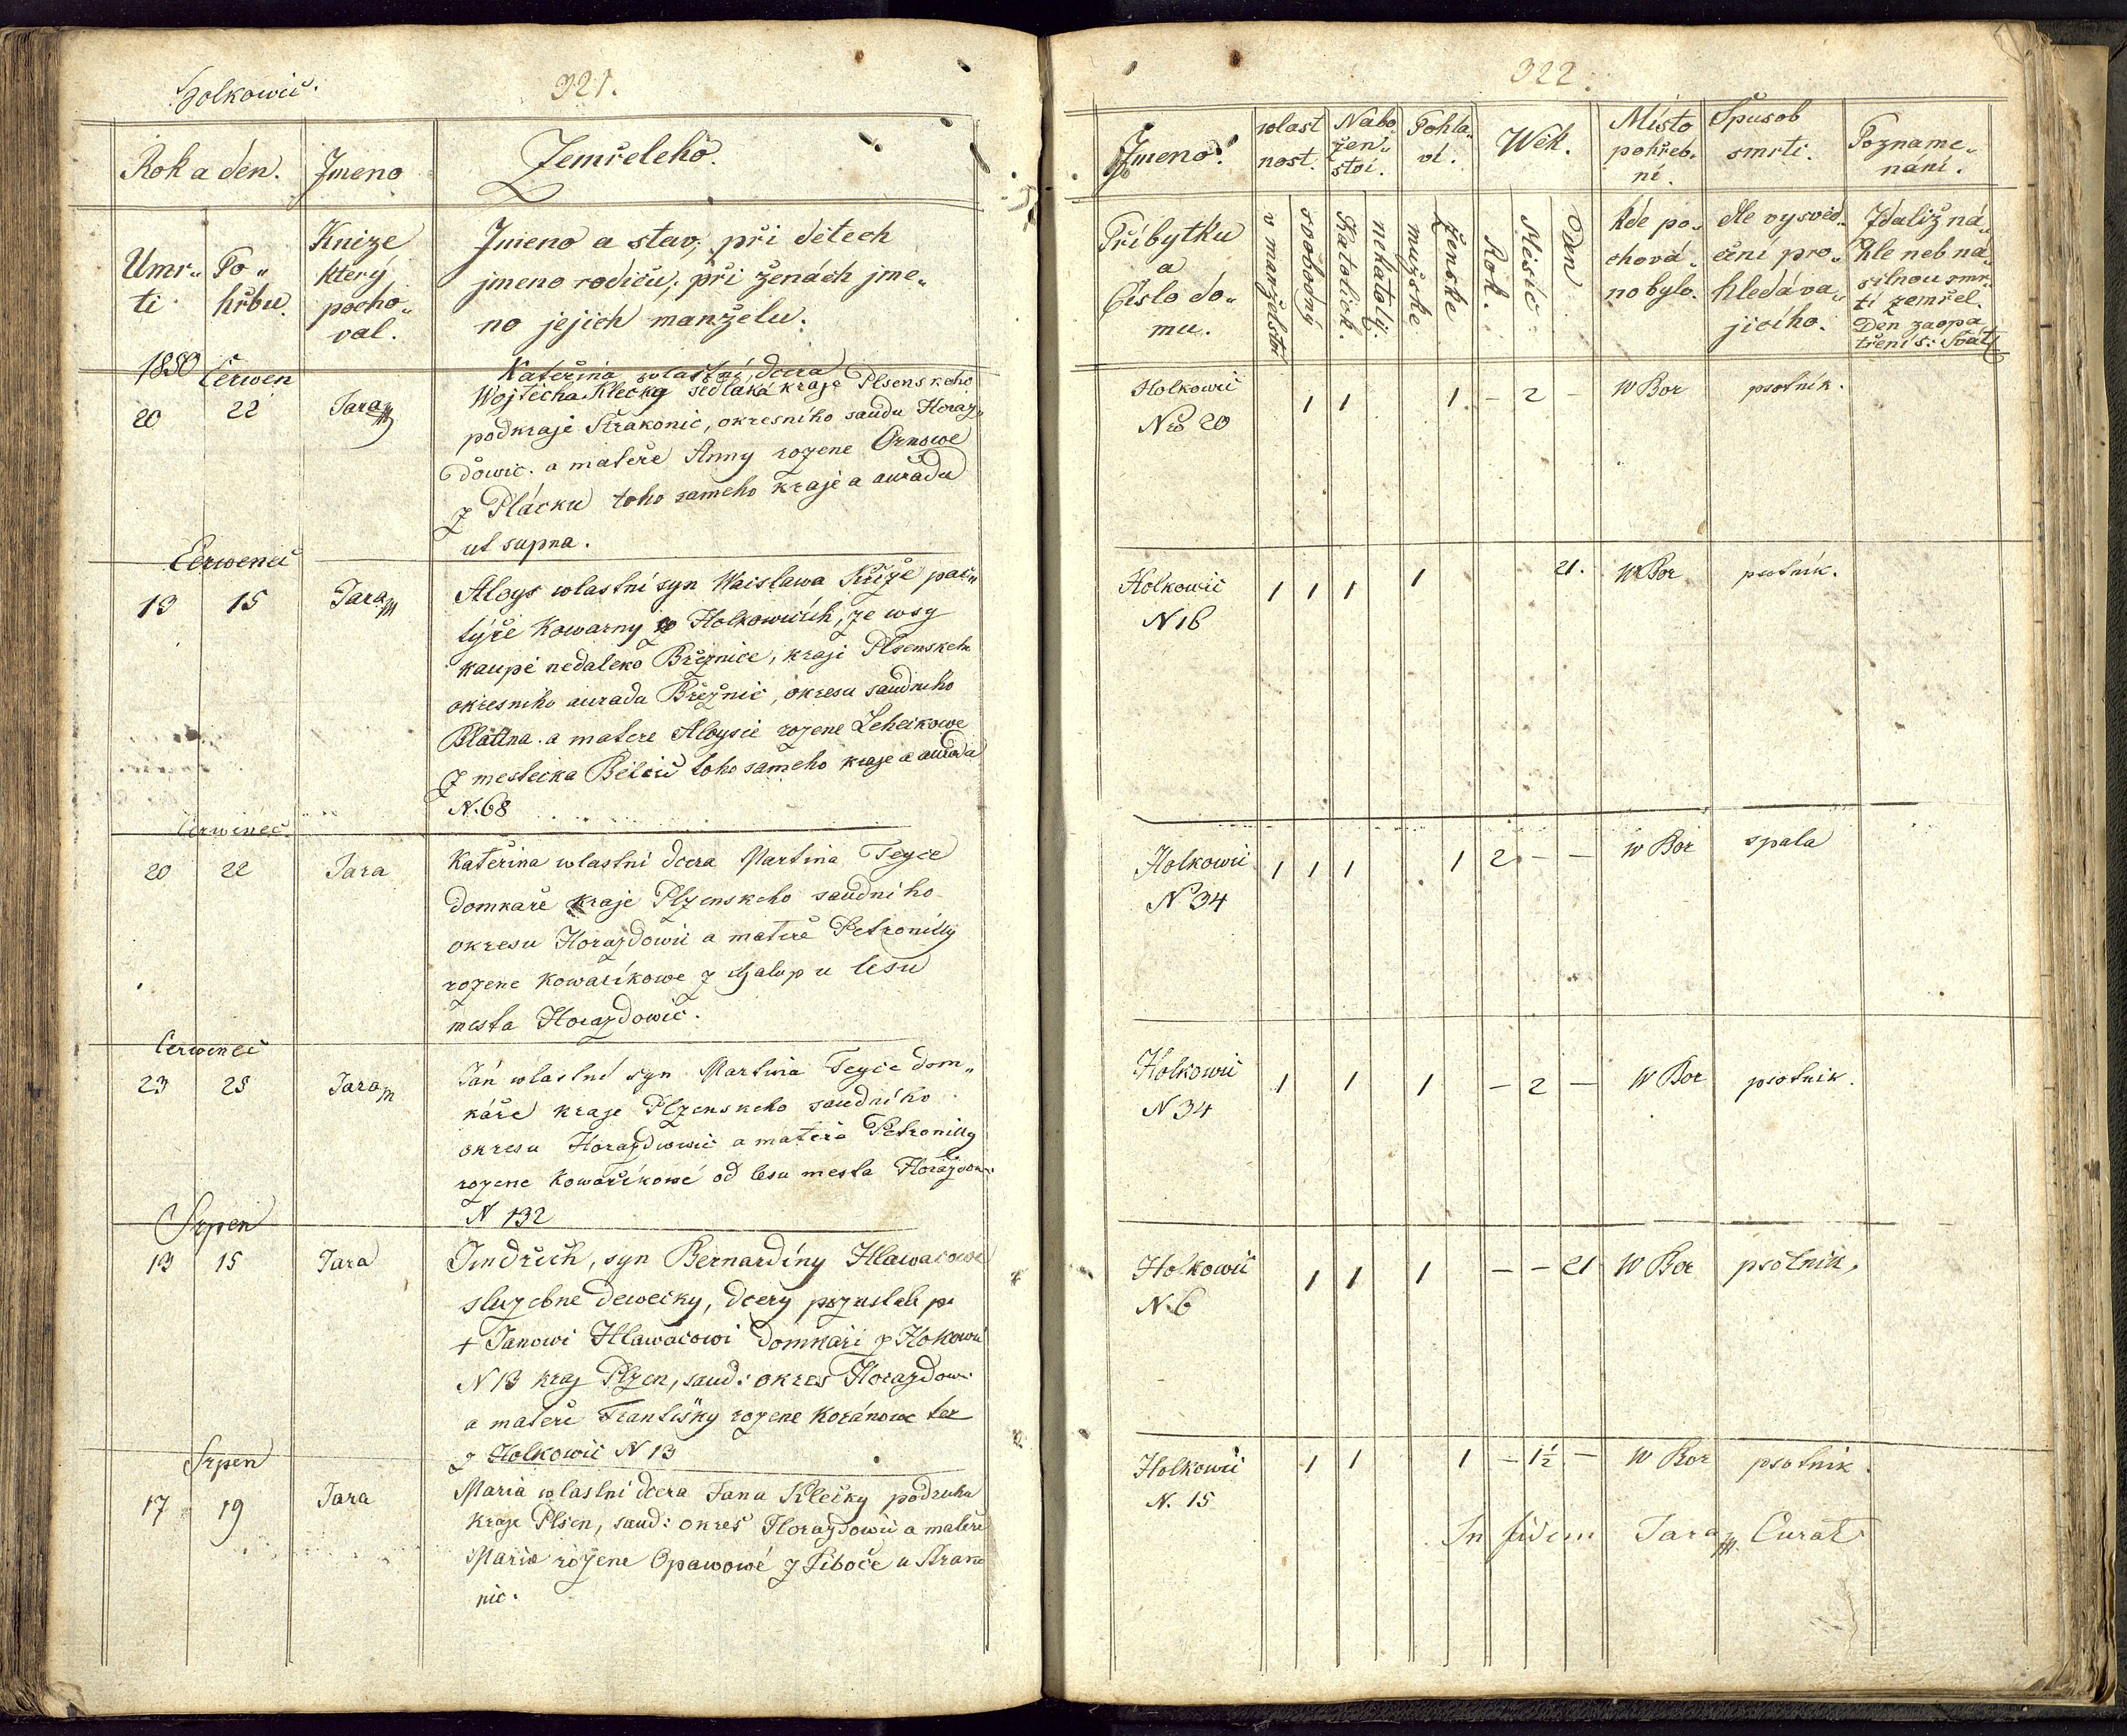 Holkowič.
321.
Rok a den.
Jmeno
Zemřeleho.
Umr„
ti
Po„
hřbu.
Knize
který
pocho„
val.
Jmeno a stav, při dětech
jmeno rodičů, při ženách jme„
no jejich manželu.
1850 Čerwen
20 22 Jara
Kateřina wlastní dcera
Wojtěcha Klečky sedláka kraje Plsenskeho
podkraje Strakonic, okresního saudu Horaz„
dowic. a mateře Anny rozene
z Plácku toho sameho kraje a auřadu
ut supra.
Čerwenec
13 15 Jara
Aloys wlastní syn Waislawa Kříže pac„
týře Kowarny w Holkowicích, ze wsy
kaupě nedaleko Březnice, kraje Plsenskeh
okresniho auradu Březnic, okresu saudniho
Blattna. a matere Aloysie rozene
z mestecka Bělcic toho sameho kraje a auradu
N. 68
Čerwenec.
20 22 Jara
Kateřina wlastni dcera Martina Teyce
domkaře kraje Plzenskeho saudniho
okresu Horazdowic a mateře Petronilly
rozene Kowaříkowe z Chalup u lesu
mesta Horazdowic.
Čerwenec
23 25 Jara
Ján wlastní syn Martina Teyce dom„
káře kraje Plzenskeho saudního
okresu Horazdowic a mateře Petronilly
rozene Kowaříkowé od lesu mesta Horazdow
N 132
Srpen
13 15 Jara
Jndřich, syn Bernardíny Hlawacowe
sluzebne dewecky, dcery pozustale po
+ Janowi Hlawacowi domkaři z Holkowic
N 13 kraj Plzen, saud: okres Horazdow:
a mateře Františky rozene Kořánowe tez
z Holkowic N 13
Srpen
17 19 Jara
Maria wlastni dcera Jana Klečky podruha
kraje Plsen, saud: okres Horazdowic a mateře
Maria rozene Opawowé z u
nic.
322.
Jmeno
wlast
nost.
Nabo„
žen„
stvi.
Pohla„
vi.
Wěk.
Místo
pohřeb„
ni.
Spusob
smrti.
Pozname„
náni.
Příbytku
a
Číslo do„
mu.
v manželstvi
svobodný
Katolick.
nekatolj.
mužske
ženske
Rok.
Měsíc
Den
kde po„
chová„
no bylo.
dle vysvěd„
čení pro„
hledáva„
jiciho.
Zdaliž ná„
hle neb ná„
silnou smr„
tí zemřel.
Den zaopa
tření s: Svát
Holkowic
Nro 20
1 1 1 – 2 – W Bor psotnik.
Holkowic
N 16
1 1 1 1 21. W Bor psotnik.
Holkowic
N 34
1 1 1 1 2 – – w Bor spala
Holkowic
N 34
1 1 1 – 2 – W Bor psotnik.
Holkowic
N. 6
1 1 1 – – 21 W Bor psotnik.
Holkowic
N. 15
1 1 1 – 1½ – W Bor psotnik.
In fidem Jara Curat